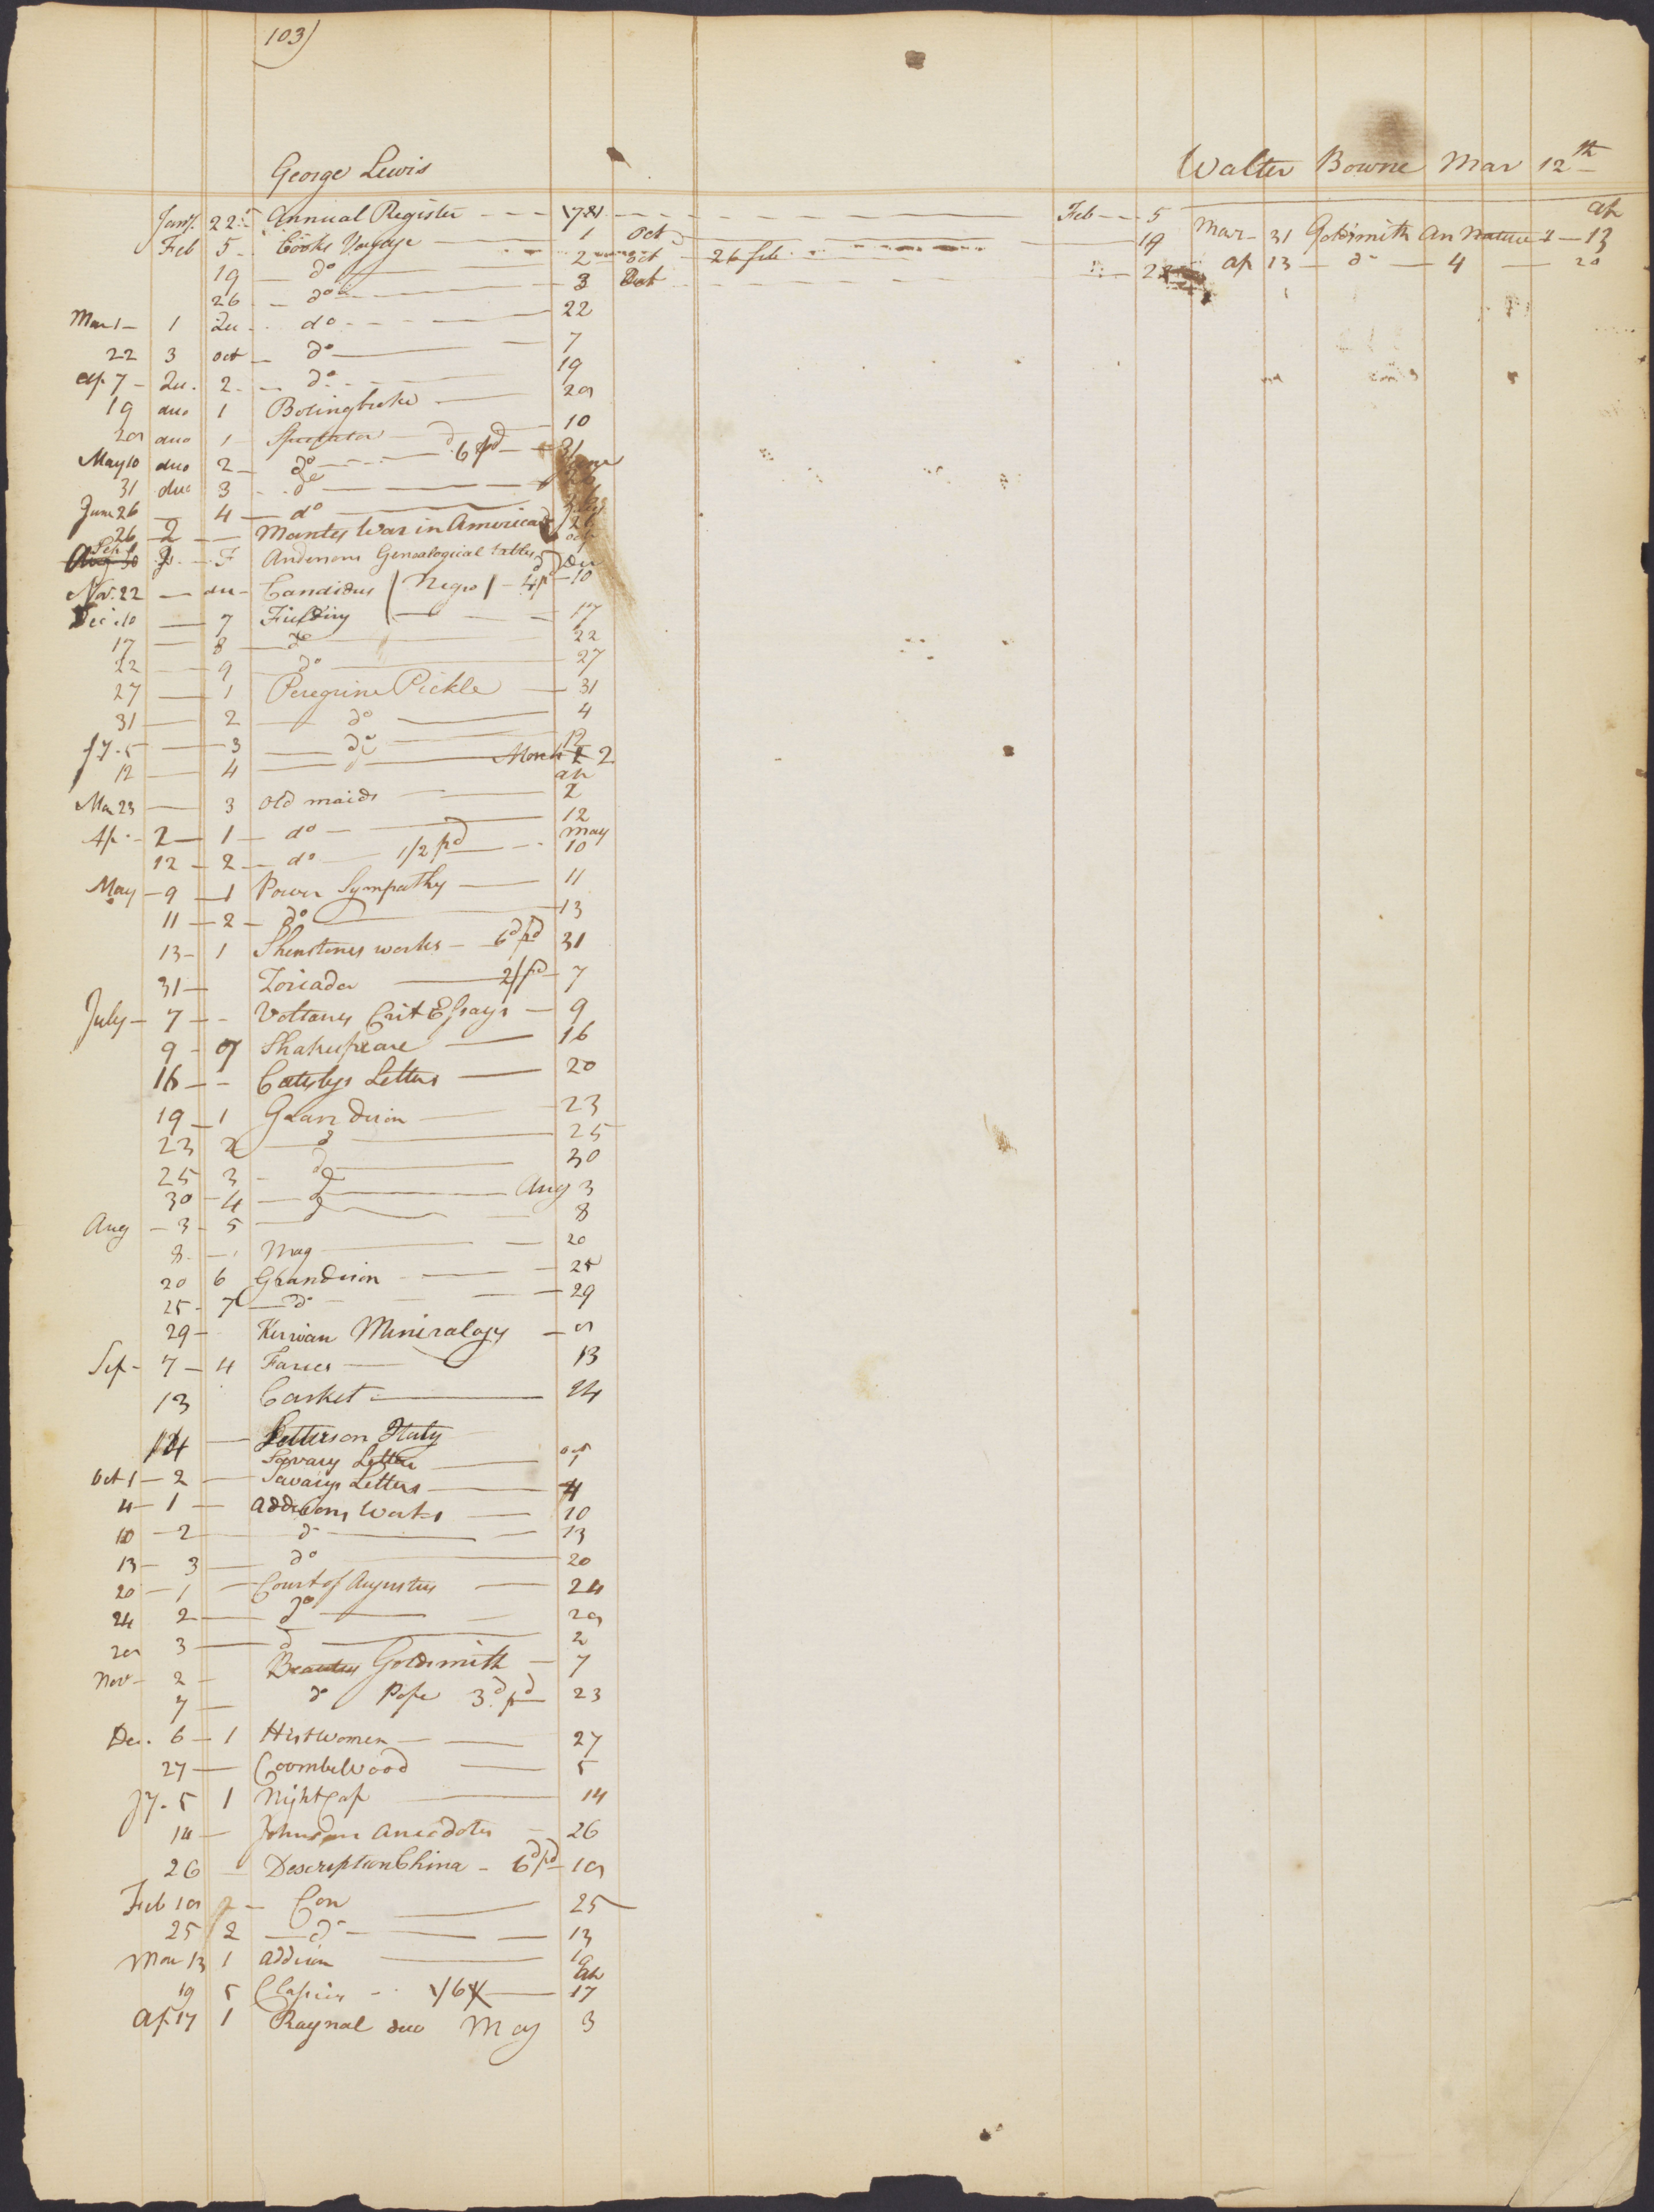 103)
George Lewis
Walter Bowne Mar 12th
Jany. 22d Annual Register 1781 Feb 5
Feb 5 Cooks Voyage 1 Oct 19
19 do 2 Oct 26 feb 28
26 do 3 Oct
Mar 1 1 Qu do 22
22 3 oct do 7
Ap. 7 Qu. 2 do 19
19 duo 1 Bolingbroke 29
29 duo 1 Spectator 10
May 10 duo 2 do 6d pd 31
31 duo 3 do
June 26 4 do
26 2 Mantes War in America 26
Sep 1 F Andersons Genealogical tables
Nov. 22 du Candidus (Negro) 4 10
Dec. 10 7 Fielding 17
17 8 do 22
22 9 do 27
27 1 Peregrine Pickle 31
31 2 do 4
Jy. 5 3 do 12
12 4 March 2
Mar 23 3 Old maids ap 2
Ap. 2 1 do 12
12 2 do 1/2 pd may 10
May 9 1 Power Sympathy 11
11 2 do 13
13 1 Shenstones works 6d pd 31
31 Zoriada 2/ pd 7
July 7 Voltaires Crit Essays 9
9 7 Shakespeare 16
16 Catesbys Letters 20
19 1 Grandison 23
23 2 d 25
25 3 do 30
30 4 d Aug 3
Aug 3 5 d 8
8 Mag 20
20 6 Grandison 25
25 7 do 29
29 Kirwan Mineralogy
Sep 7 4 Farces 13
13 Casket 24
14 Letters on Italy
Savary Letters oct 1
Oct 1 2 Savarys Letters 4
4 1 Addisons Works 10
10 2 do 13
13 3 do 20
20 1 Court of Augustus 24
24 2 do 29
29 3 d 2
Nov 2 Beauties Goldsmith 7
7 do Pope 3d pd 23
De. 6 1 Hist Women 27
27 Coombe Wood 5
Jy. 5 1 Night Cap 14
14 Johnson Anecdotes 26
26 Description China 6d pd 19
Feb 19 Con 25
25 2 do 13
Mar 13 1 Addison 19
19 5 Classics 1/6 ap 17
Ap 17 1 Raynal duo May 3
ap
Mar 31 Goldsmith An Nature 13
ap 13 do 4 20